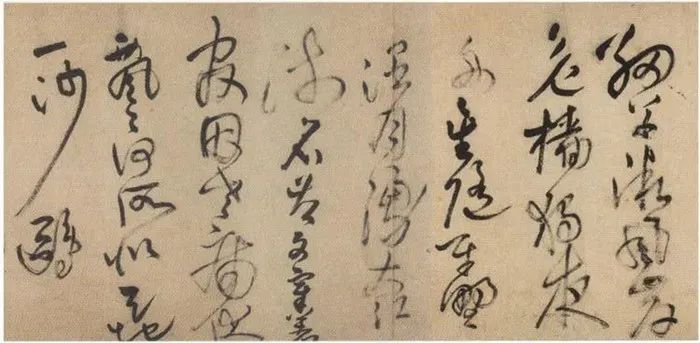 細草微風岸
危檣獨夜
舟星隨平野
闊月湧大江
流名豈文章著
官因老病休
飄飄何所似天地
一沙鷗